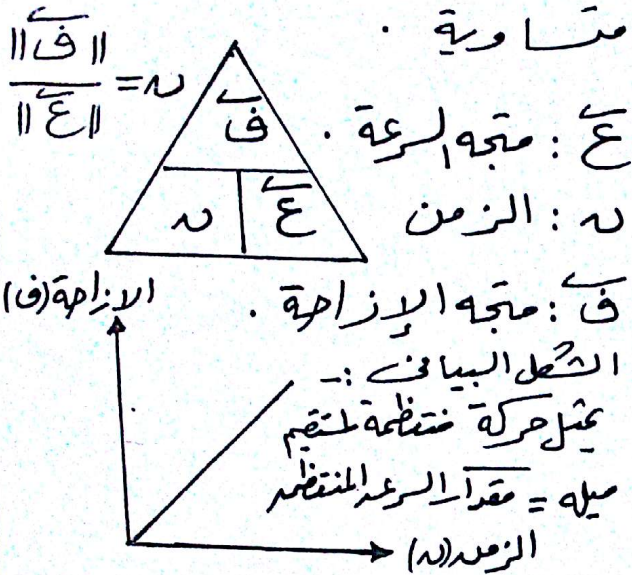 متساوية .
ع : متجه السرعة .
ن : الزمن
ف : متجه الإزاحة .
ن = ||ف|| / ||ع||
ف
ن ع
الشكل البياني :-
يمثل حركة منتظمة لمستقيم
ميله = مقدار السرعة المنتظمه
الازاحة (ف)
الزمن (ن)